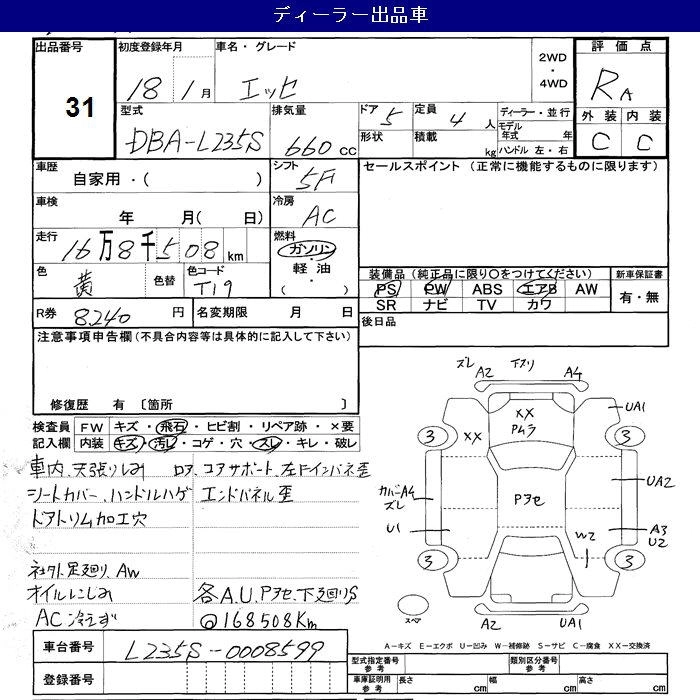 ディーラー出品車
出品番号
31
初度登録年月
18年 1月
車名・グレード
エッセ
2WD
・
4WD
評価点
RA
外装 内装
C C
型式
DBA-L235S
排気量
660cc
ドア 5
形状
定員 4人
積載 kg
ディーラー・並行
モデル年式 年
ハンドル 左・右
車歴
自家用・( )
シフト
5F
セールスポイント (正常に機能するものに限ります)
車検
年 月( 日)
冷房
AC
走行
16万8千508km
燃料
ガソリン
・
軽油
( ・ )
色
黄
色替
色コード
T19
装備品(純正品に限り○をつけてください)
PS PW ABS エアB AW
SR ナビ TV カワ
新車保証書
有・無
R券 8240円
名変期限 月 日
後日品
注意事項申告欄(不具合内容等は具体的に記入して下さい)
修復歴 有 〔箇所 〕
検査員記入欄
FW キズ・飛石・ヒビ割・リペア跡・×要
内装 キズ・汚レ・コゲ・穴・スレ・キレ・破レ
車内、天張りしみ
シートカバー、ハンドルハゲ
ドアトリム加工穴
社外足廻り、AW
オイルにじみ
AC冷えず
コアサポート、左Fインパネ歪
エンドパネル歪
各A.U.Pヌセ、下廻りS
@168508Km
ズレ 下スリ
A2 A4
XX
Pムラ
XX
UA1
3 3
カバーA4
ズレ
UA2
Pヌセ
U1
W2
A3
U2
3 3
スペア
A2 UA1
A−キズ E−エクボ U−凹み W−補修跡 S−サビ C−腐食 XX−交換済
車台番号 L235S-0008599
登録番号
型式指定番号参考
類別区分番号参考
車庫証明用参考
長さ cm 幅 cm 高さ cm